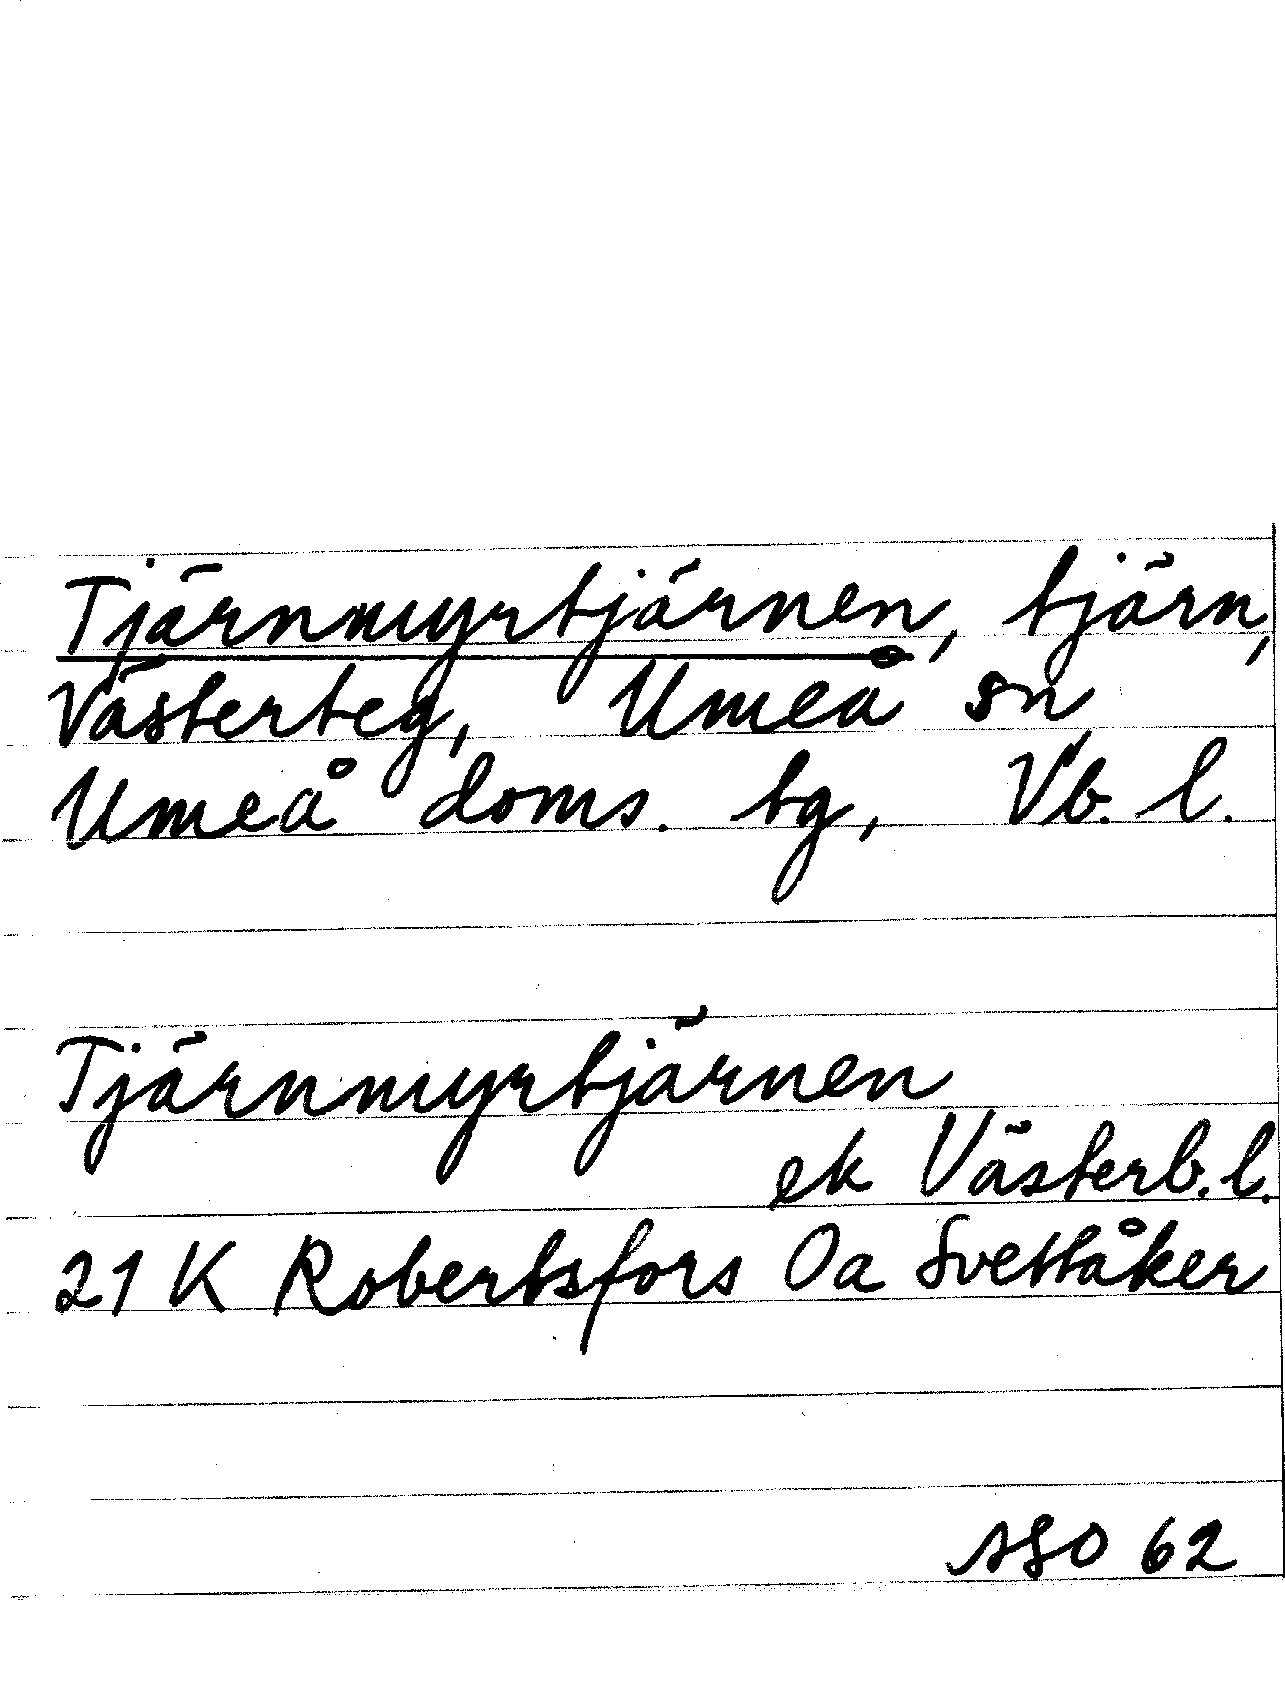 Tjärnmyrtjärnen, tjärn,
Västerteg, Umeå sn
Umeå doms. tg, Vb. l.
Tjärnmyrtjärnen
ek Västerb. l.
21 K Robertsfors Oa Svettåker
62